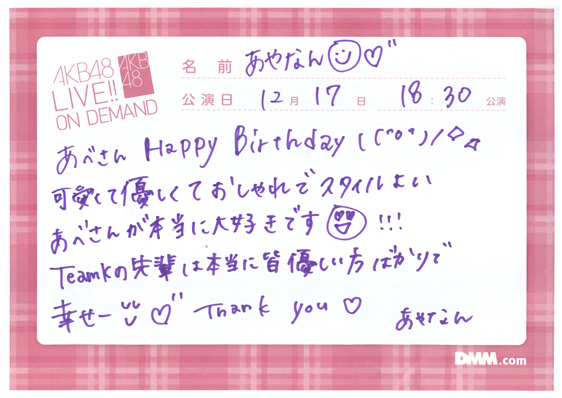 AKB48
LIVE!!
ON DEMAND
AKB
48
名前 あやなん
公演日 12月17日 18:30公演
あべさん Happy Birthday \(^o^)/
可愛くて優しくておしゃれでスタイルよい
あべさんが本当に大好きです !!!
TeamKの先輩は本当に皆優しい方ばかりで
幸せー Thank you ♡ あやなん
DMM.com